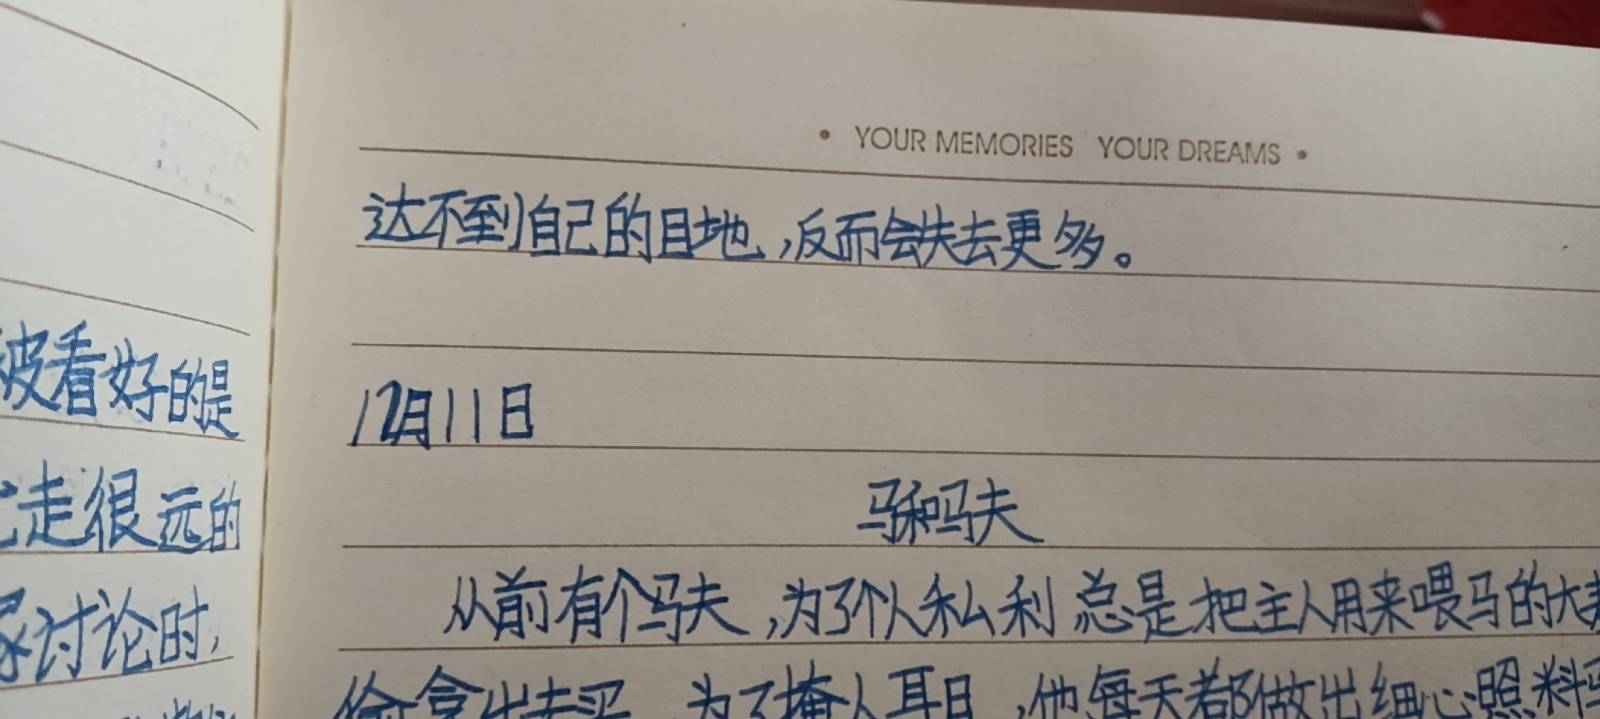 被看好的是
走很远的
讨论时,
• YOUR MEMORIES YOUR DREAMS •
达不到自己的目地,反而会失去更多。
12月11日
马和马夫
从前有个马夫,为了个人私利总是把主人用来喂马的大
偷拿出去买 为了掩人耳目,他每天都做出细心照料马